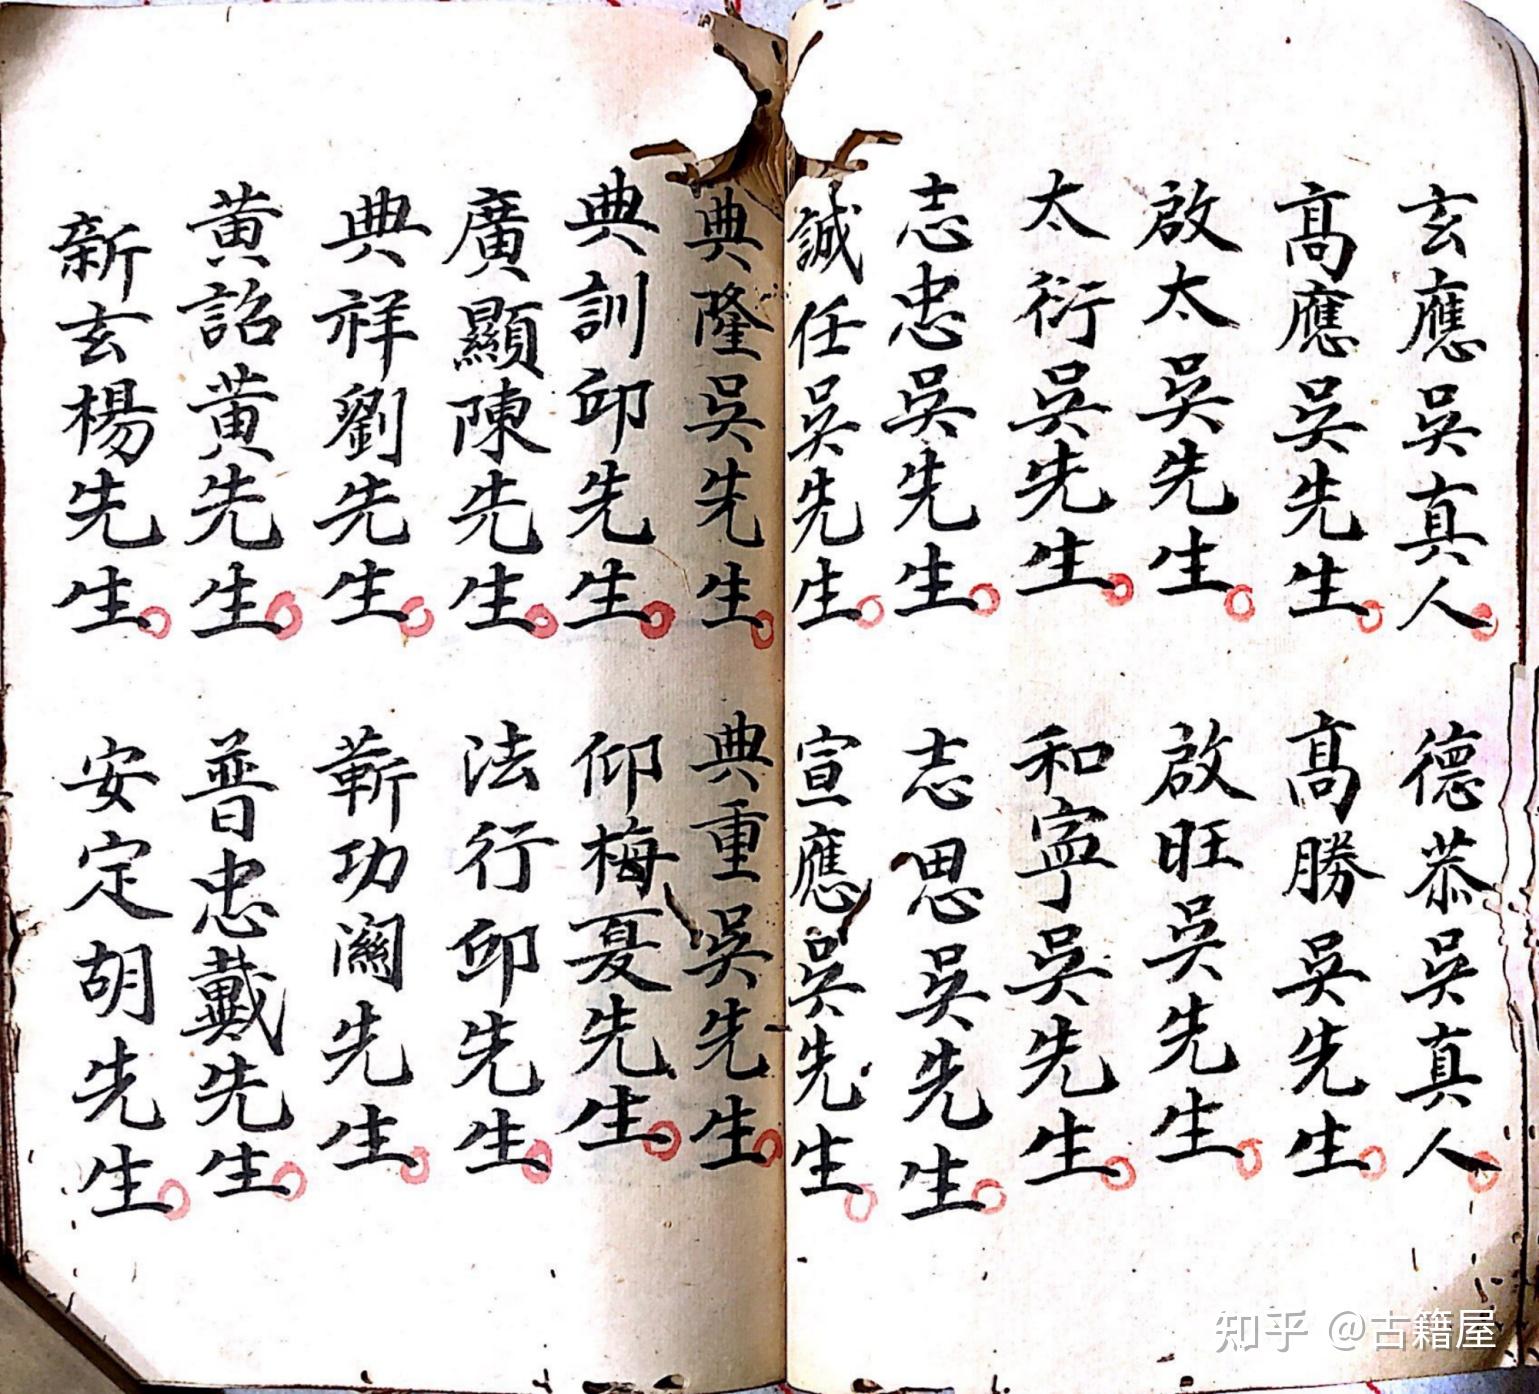 玄應吳真人 德恭吳真人
高應吳先生 高勝吳先生
啟太吳先生 啟旺吳先生
太衍吳先生 和寍吳先生
志忠吳先生 志思吳先生
誠任吳先生 宣應吳先生
典隆吳先生 典重吳先生
典訓邱先生 仰梅夏先生
廣顯陳先生 法行邱先生
典祥劉先生 蕲功 先生
黄詔黄先生 普忠戴先生
新玄楊先生 安定胡先生
知乎 @古籍屋